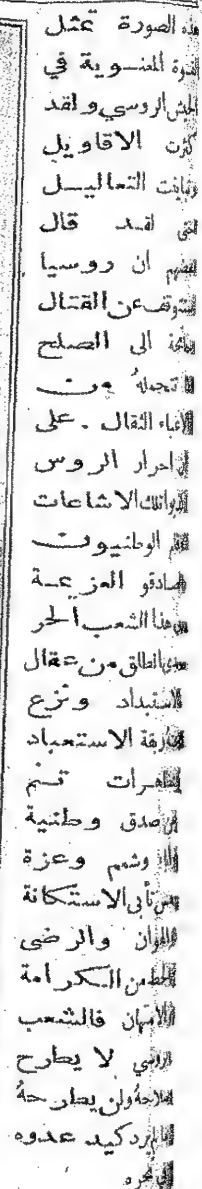 هذه الصورة تمثل
القوة المعنـوية في
الجيش الروسي ولقد
كثرت الاقاويل
وتباينت التعاليـل
حتى لقـد قال
بعضهم ان روسيا
ستتوقف عن القتال
جانحة الى الصلح
لما تحملهُ من
الاعباء الثقال . على
ان احرار الروس
انكروا تلك الاشاعات
فهم الوطنيون
الصادقو العزيمـة
من هذا الشعب الحر
الطالق من عقال
الاستبداد ونزع
ربقة الاستعباد
مظاهرات تنـم
عن صدق وطنية
وشمم وعزة
نفس تأبى الاستكانة
والهوان والرضى
بالحط من الكرامة
والامتهان فالشعب
الروسي لا يطرح
سلاحهُ ولن يطرحهُ
ما لم يرد كيد عدوه
في نحره